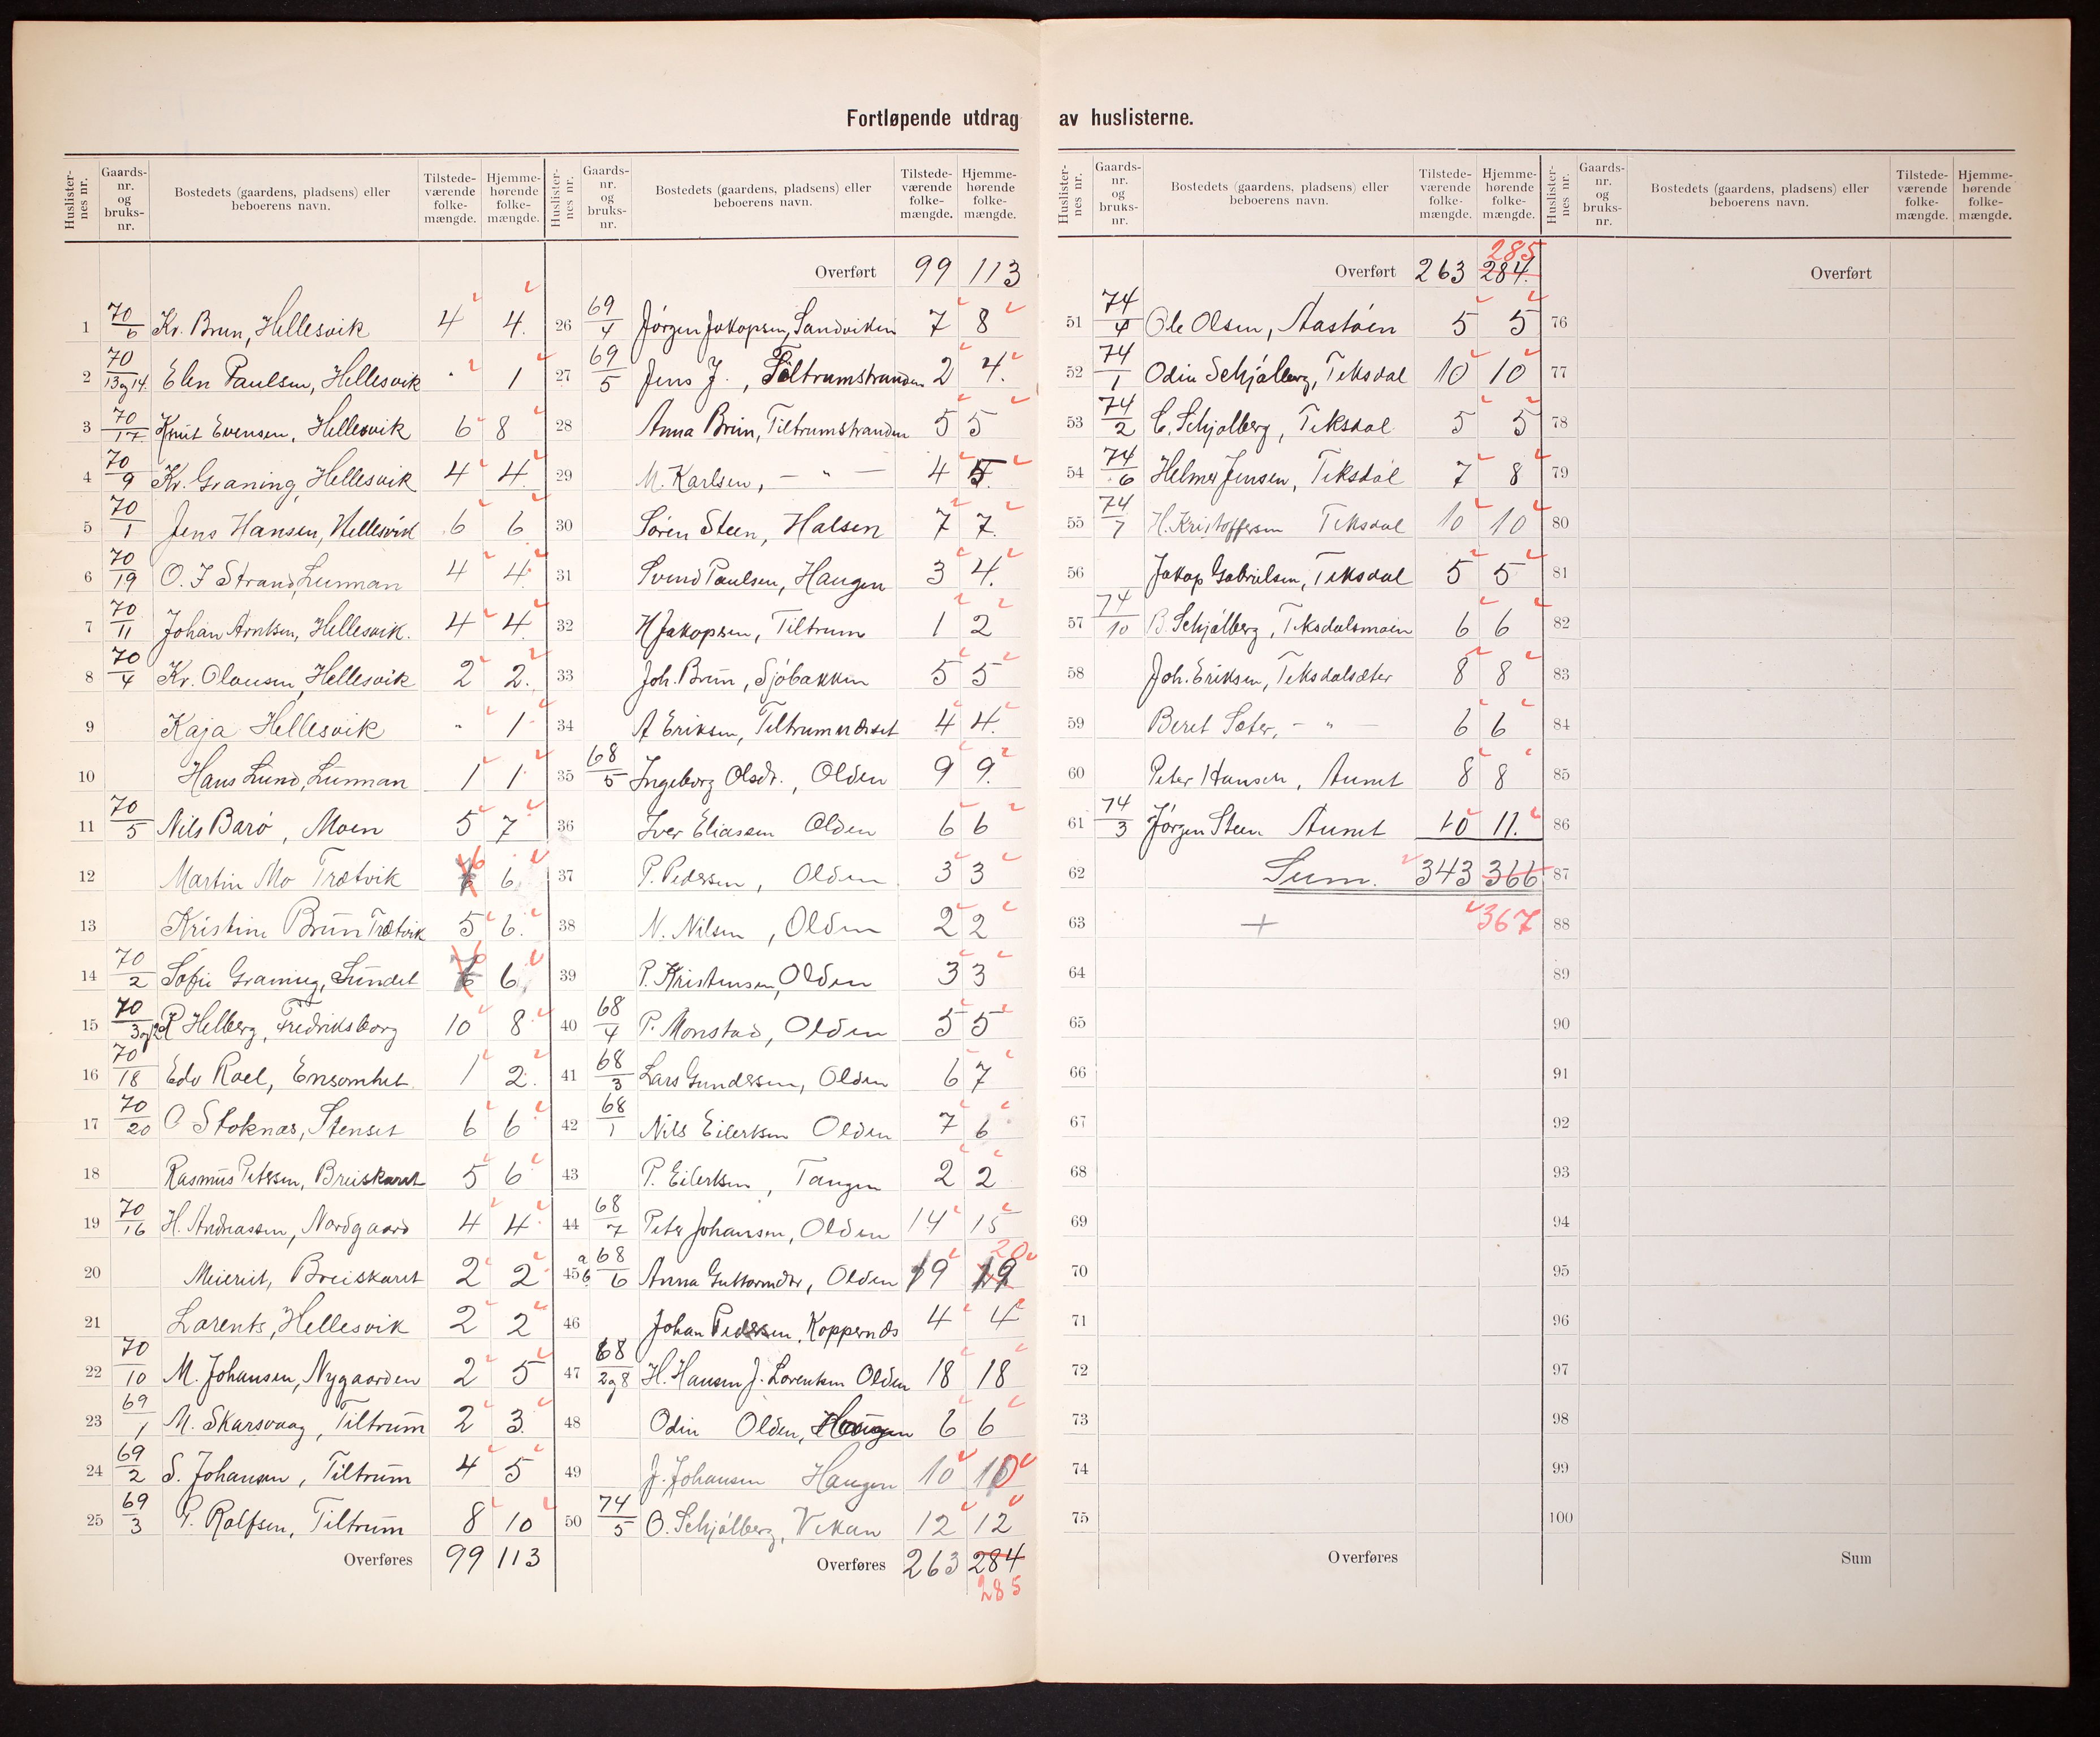 Fortløpende utdrag av huslisterne.
Huslisternes nr. Gaards-nr. og bruks-nr. Bostedets (gaardens, pladsens) eller beboerens navn. Tilstedeværende folkemængde. Hjemmehørende folkemængde.
1 70/6 Kr. Brun, Hellesvik 4 4.
2 70/13og14 Elen Paulsen, Hellesvik - 1
3 70/17 Knut Evensen, Hellesvik 6 8
4 70/9 Kr. Graning Hellesvik 4 4
5 70/1 Jens Hansen, Hellesvik 6 6
6 70/19 O. J Strand, Lunman 4 4.
7 70/11 Johan Arntsen, Hellesvik. 4 4.
8 70/4 Kr. Olausen Hellesvik 2 2.
9 Kaja Hellesvik - 1
10 Hans Lund, Lunman 1 1
11 70/5 Nils Barø, Moen 5 7
12 Martin Mo Trætvik 6 6
13 Kristine Brun Trætvik 5 6.
14 70/2 Sofie Graning, Sundet 6 6
15 70/3og12 P. Helberg, Fredriksborg 10 8
16 70/18 Edv Roel, Ensomhet 1 2.
17 70/20 O Stoknæs, Stenset 6 6
18 Rasmus Petersen, Breiskaret 5 6
19 70/16 H. Andreassen, Nordgaard 4 4
20 Meieriet, Breiskaret 2 2
21 Larents, Hellesvik 2 2
22 70/10 M. Johansen, Nygaarden 2 5
23 69/1 M. Skarsvaag, Tiltrum 2 3.
24 69/2 S. Johansen, Tiltrum 4 5
25 69/3 P. Rolfsen, Tiltrum 8 10
Overføres 99 113
Huslisternes nr. Gaards-nr. og bruks-nr. Bostedets (gaardens, pladsens) eller beboerens navn. Tilstedeværende folkemængde. Hjemmehørende folkemængde.
Overført 99 113
26 69/4 Jørgen Jakopsen, Sandviken 7 8
27 69/5 Jens J., Tiltrumstranden 2 4.
28 Anna Brun, Tiltrumstranden 5 5
29 M. Karlsen, - " - 4 5.
30 Søren Steen, Halsen 7 7.
31 Svend Paulsen, Haugen 3 4.
32 H Jakopsen, Tiltrum 1 2
33 Joh. Brun, Sjøbakken 5 5
34 A Eriksen, Tiltrumneset 4 4.
35 68/5 Ingeborg Olsdr., Olden 9 9.
36 Iver Eliassen Olden 6 6
37 P. Pedersen, Olden 3 3
38 N. Nilsen, Olden 2 2
39 P. Kristensen, Olden 3 3
40 68/4 P. Monstad, Olden 5 5
41 68/3 Lars Gundersen, Olden 6 7
42 68/1 Nils Eilertsen Olden 7 6
43 P. Eilertsen, Tangen 2 2
44 68/7 Peter Johansen, Olden 14 15
45 a b 68/6 Anna Guttormdtr, Olden 19 19 20
46 Johan Pedersen, Koppernæs 4 4
47 68/2og8 H. Hansen J. Lorentsen Olden 18 18
48 Odin Olden, Haugen 6 6
49 J. Johansen Haugen 10 10
50 74/5 O. Schjølberg, Vikan 12 12
Overføres 263 284
285
Huslisternes nr. Gaards-nr. og bruks-nr. Bostedets (gaardens, pladsens) eller beboerens navn. Tilstedeværende folkemængde. Hjemmehørende folkemængde.
285
Overført 263 284.
51 74/4 Ole Olsen, Aastøen 5 5
52 74/1 Odin Schjølberg, Teksdal 10 10
53 74/2 C. Schjølberg, Teksdal 5 5
54 74/6 Helmer Jensen, Teksdal 7 8
55 74/7 H. Kristoffersen Teksdal 10 10
56 Jakop Gabrielsen, Teksdal 5 5
57 74/10 B. Schjølberg, Teksdalsmoen 6 6
58 Joh. Eriksen, Teksdalsæter 8 8
59 Beret Sæter, - " - 6 6
60 Peter Hansen, Aunet 8 8
61 74/3 Jørgen Steen Aunet 10 11.
62 Sum. 343 366
63 + 367
64
65
66
67
68
69
70
71
72
73
74
75
Overføres
Huslisternes nr. Gaards-nr. og bruks-nr. Bostedets (gaardens, pladsens) eller beboerens navn. Tilstedeværende folkemængde. Hjemmehørende folkemængde.
Overført
76
77
78
79
80
81
82
83
84
85
86
87
88
89
90
91
92
93
94
95
96
97
98
99
100
Sum